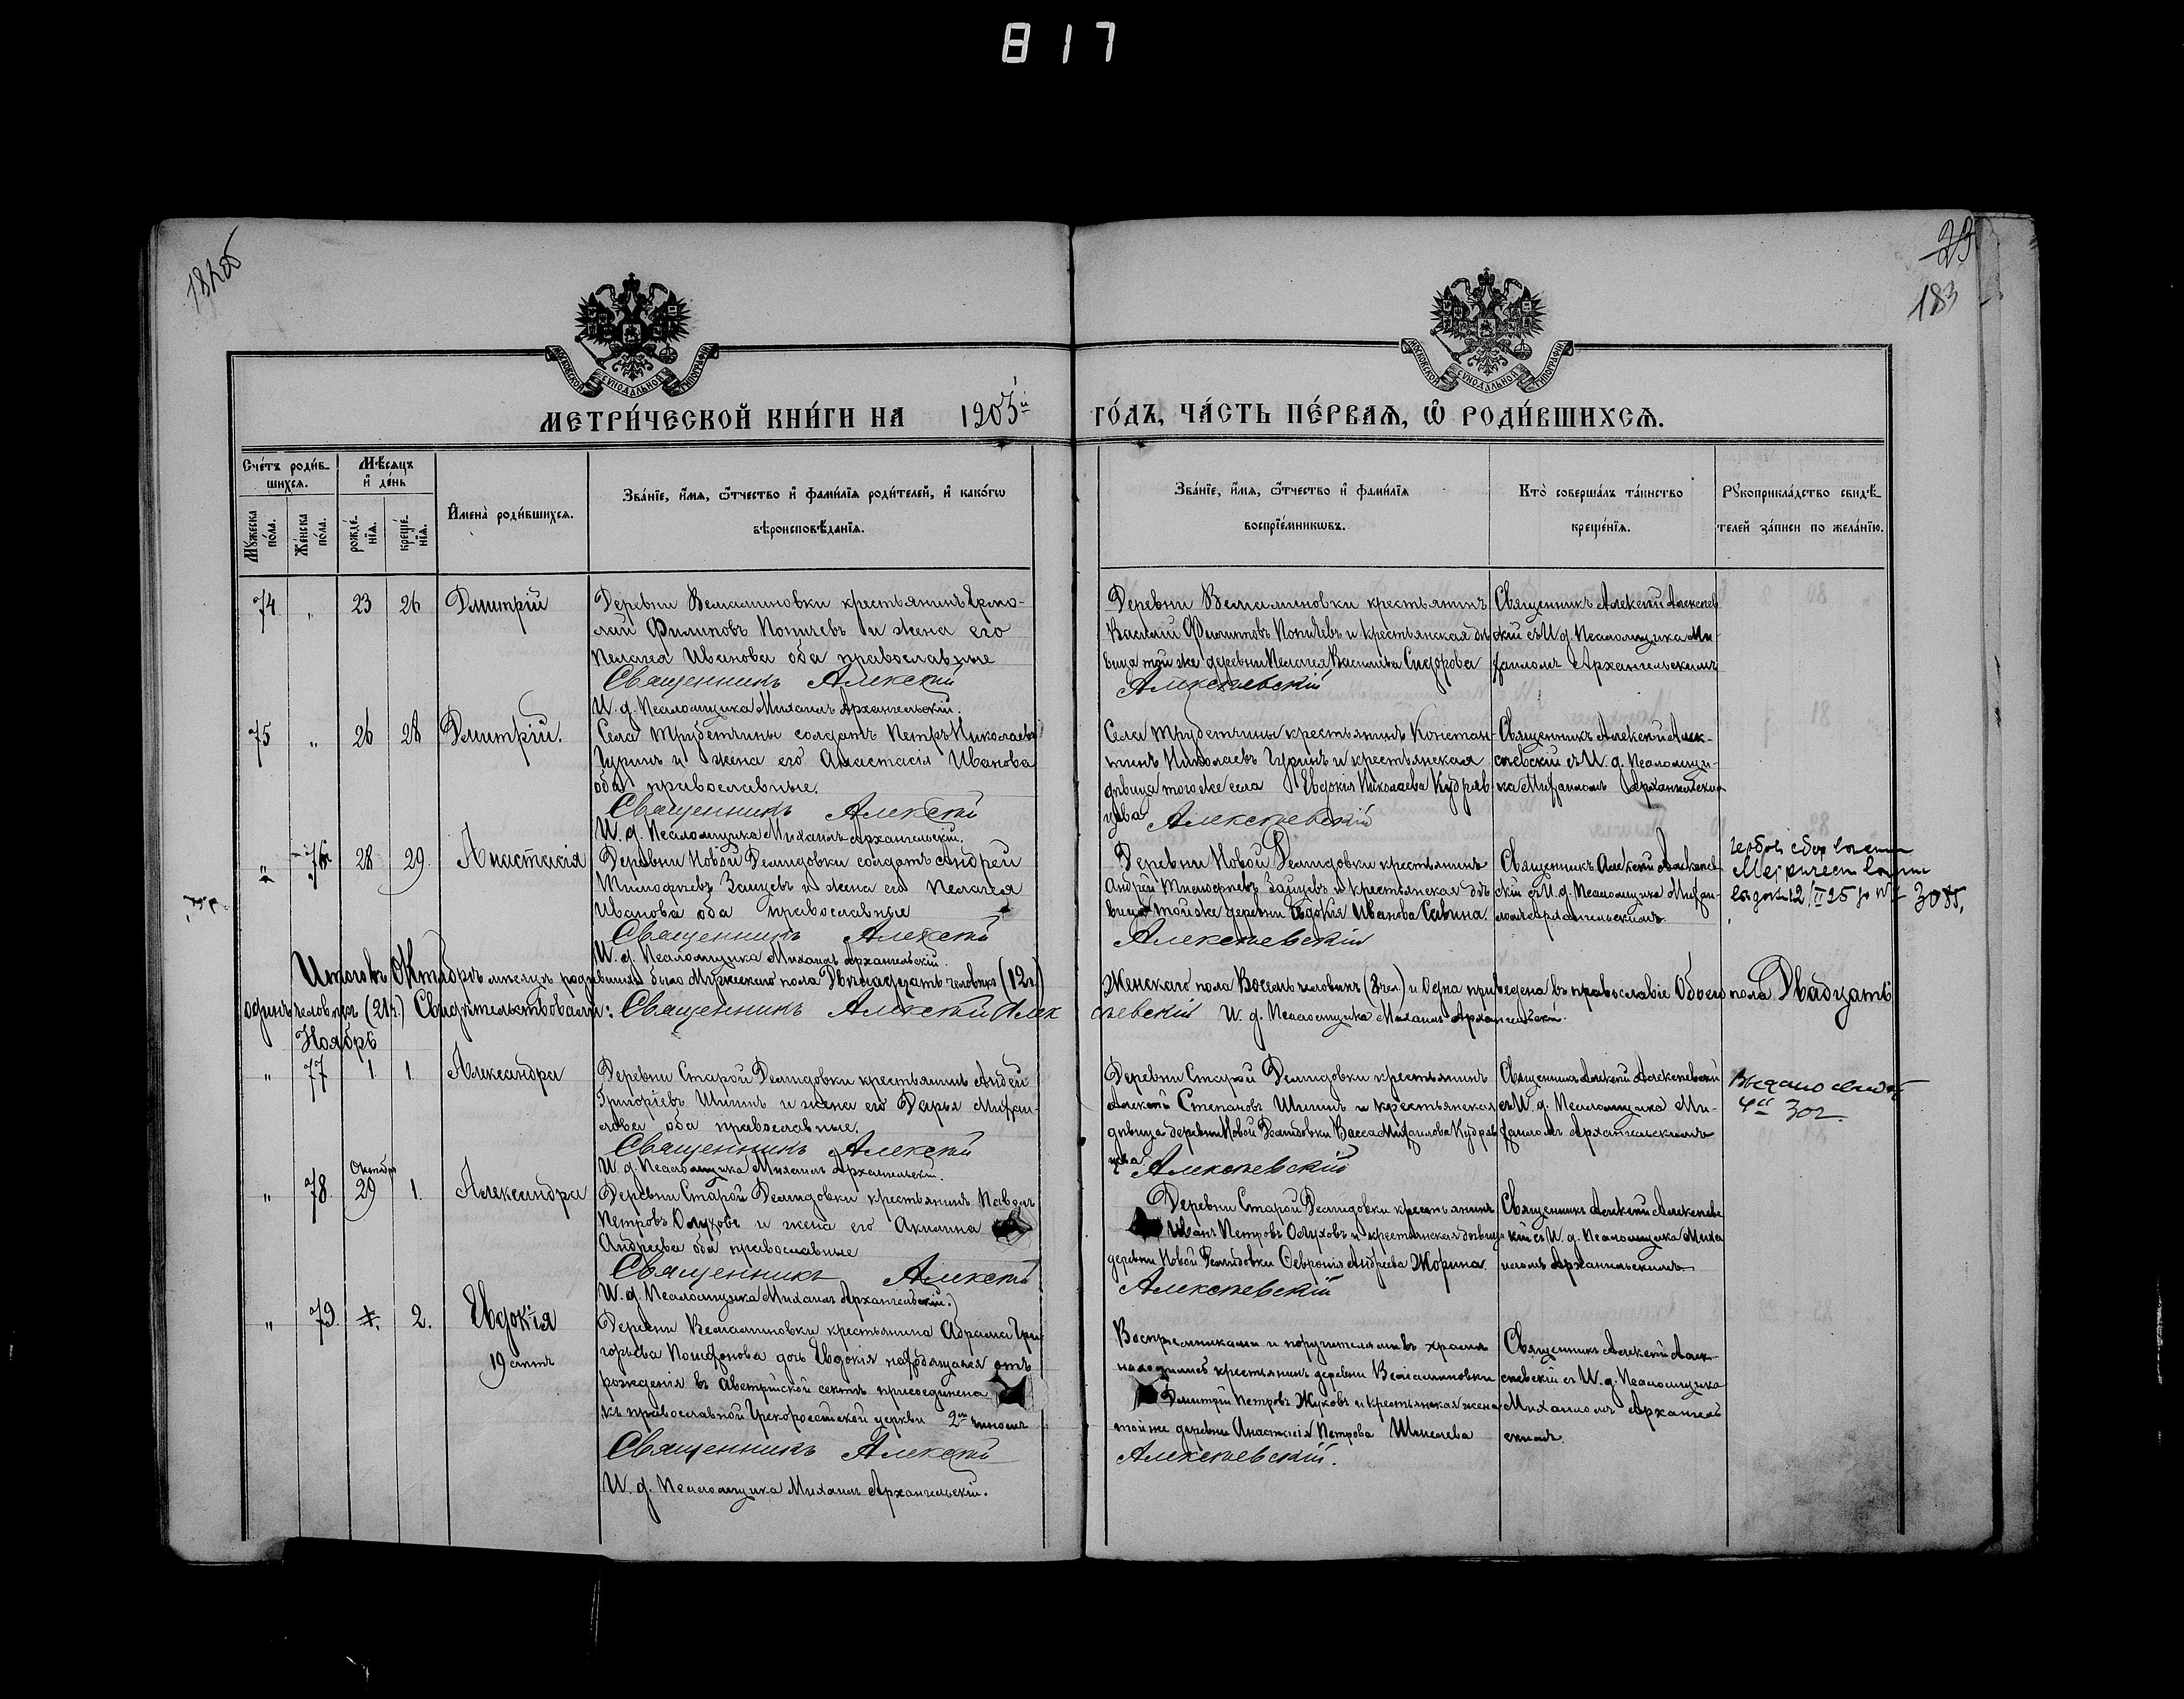 817
182об
23
183
МОСКОВСКОЙ СѴНОДАЛЬНОЙ ТИПОГРАФІИ
МОСКОВСКОЙ СѴНОДАЛЬНОЙ ТИПОГРАФІИ
МЕТРИ́ЧЕСКОЙ КНИ́ГИ НА 1905й ГО́ДЪ, ЧА́СТЬ ПЕ́РВАѦ, Ѿ РОДИ́ВШИХСѦ.
Сче́тъ роди́в-
шихсѧ.
Мѣ́сѧцъ
и҆ де́нь
Мꙋ́жеска по́ла.
Же́нска по́ла.
рожде́-
нїѧ.
креще́-
нїѧ.
И҆мена̀ роди́вшихсѧ.
Зва́нїе, и҆́мѧ, ѻ҆́тчество и҆ фами́лїѧ роди́телей, и҆ како́гѡ
вѣроисповѣ́данїѧ.
Зва́нїе, и҆́мѧ, ѻ҆́тчество и҆ фами́лїѧ
воспрїе́мникѡвъ.
Кто̀ соверша́лъ та́инство
креще́нїѧ.
Рꙋкоприкла́дство свидѣ́-
телей за́писи по жела́нїю.
74 " 23 26 Дмитрій
Деревни Вельяминовки крестьянинъ Ермо-
лай Филиповъ Попичевъ и жена его
Пелагея Иванова оба православные
Священникъ Алексѣй
И. д. Псаломщика Михаилъ Архангельскій.
Деревни Вельяминовки крестьянинъ
Василій Филиповъ Попичевъ и крестьянская дѣ
вица той же деревни Пелагея Васильева Сидорова
Алексѣевскій
Священникъ Алексѣй Алексѣев
скій съ И. д. Псаломщика Ми-
хаиломъ Архангельскимъ
75 " 26 28 Дмитрій.
Села Трубетчины солдатъ Петръ Николаевъ
Гуринъ и жена его Анастасія Иванова
оба православные.
Священникъ Алексѣй
И. д. Псаломщика Михаилъ Архангельскій.
Села Трубетчины крестьянинъ Констан-
тинъ Николаевъ Гуринъ и крестьянская
дѣвица того же села Евдокія Николаева Кудряв
цева Алексѣевскій
Священникъ Алексѣй Алек-
сѣевскій съ И. д. Псаломщи-
ка Михаиломъ Архангельским
" 76 28 29. Анастасія
Деревни Новой Демидовки солдатъ Андрей
Тимофѣевъ Зайцевъ и жена его Пелагея
Иванова оба православные
Священникъ Алексѣй
И. д. Псаломщика Михаилъ Архангельскій.
Деревни Новой Демидовки крестьянинъ
Андрей Тимофѣевъ Зайцевъ и крестьянская дѣ
вица той же деревни Евдокія Иванова Савина
Алексѣевскій
Священникъ Алексѣй Алексѣев
скій съ И. д. Псаломщика Михаи-
ломъ Архангельскимъ.
гербов сбор
12/II 25 30
Итого въ Октябрѣ мѣсяцѣ родившихся было Мужескаго пола Двѣнадцать человѣкъ (12 ч.) Женскаго пола Восемь человѣкъ (8 чел.) и Одна приведена въ православіе Обоего пола Двадцать
одинъ человѣкъ (21 ч.) Свидѣтельствовали: Священникъ Алексѣй Алексѣевскій И. д. Псаломщика Михаилъ Архангельскій.
Ноябрь
" 77 1 1 Александра
Деревни Старой Демидовки крестьянинъ Андрей
Григоріевъ Шишинъ и жена его Дарья Михаи-
лова оба православные.
Священникъ Алексѣй
И. д. Псаломщика Михаилъ Архангельскій.
Деревни Старой Демидовки крестьянинъ
Алексѣй Степановъ Шишинъ и крестьянская
дѣвица деревни Новой Демидовки Васса Михаилова Кудряв
цева Алексѣевскій
Священникъ Алексѣй Алексѣевскій
съ И. д. Псаломщика Ми-
хаиломъ Архангельскимъ
Выдано
302
Октября
" 78. 29 1. Александра
Деревни Старой Демидовки крестьянинъ Павелъ
Петровъ Олуховъ и жена его Акилина
Андреева оба православные
Священникъ Алексѣй
И. д. Псаломщика Михаилъ Архангельскій.
Деревни Старой Демидовки крестьянинъ
Иванъ Петровъ Олуховъ и крестьянская дѣвица
деревни Новой Демидовки Февронія Андреева Жорина.
Алексѣевскій
Священникъ Алексѣй Алексѣевс
кій съ И. д. Псаломщика Миха
иломъ Архангельскимъ.
" 79. 2. Евдокія
19 лѣтъ
Деревни Вельяминовки крестьянина Абрама Гри-
горьева дочь Евдокія находящаяся отъ
рожденія въ Австрійской сектѣ присоединена
къ православной Грекороссійской церкви 2мъ чиномъ
Священникъ Алексѣй
И. д. Псаломщика Михаилъ Архангельскій.
Воспріемниками и поручителями въ храмѣ
находились крестьянинъ деревни Вельяминовки
Дмитрій Петровъ Жуковъ и крестьянская жена
той же деревни Анастасія Петрова
Алексѣевскій.
Священникъ Алексѣй Алек-
сѣевскій съ И. д. Псаломщика
Михаиломъ Архангель
скимъ.